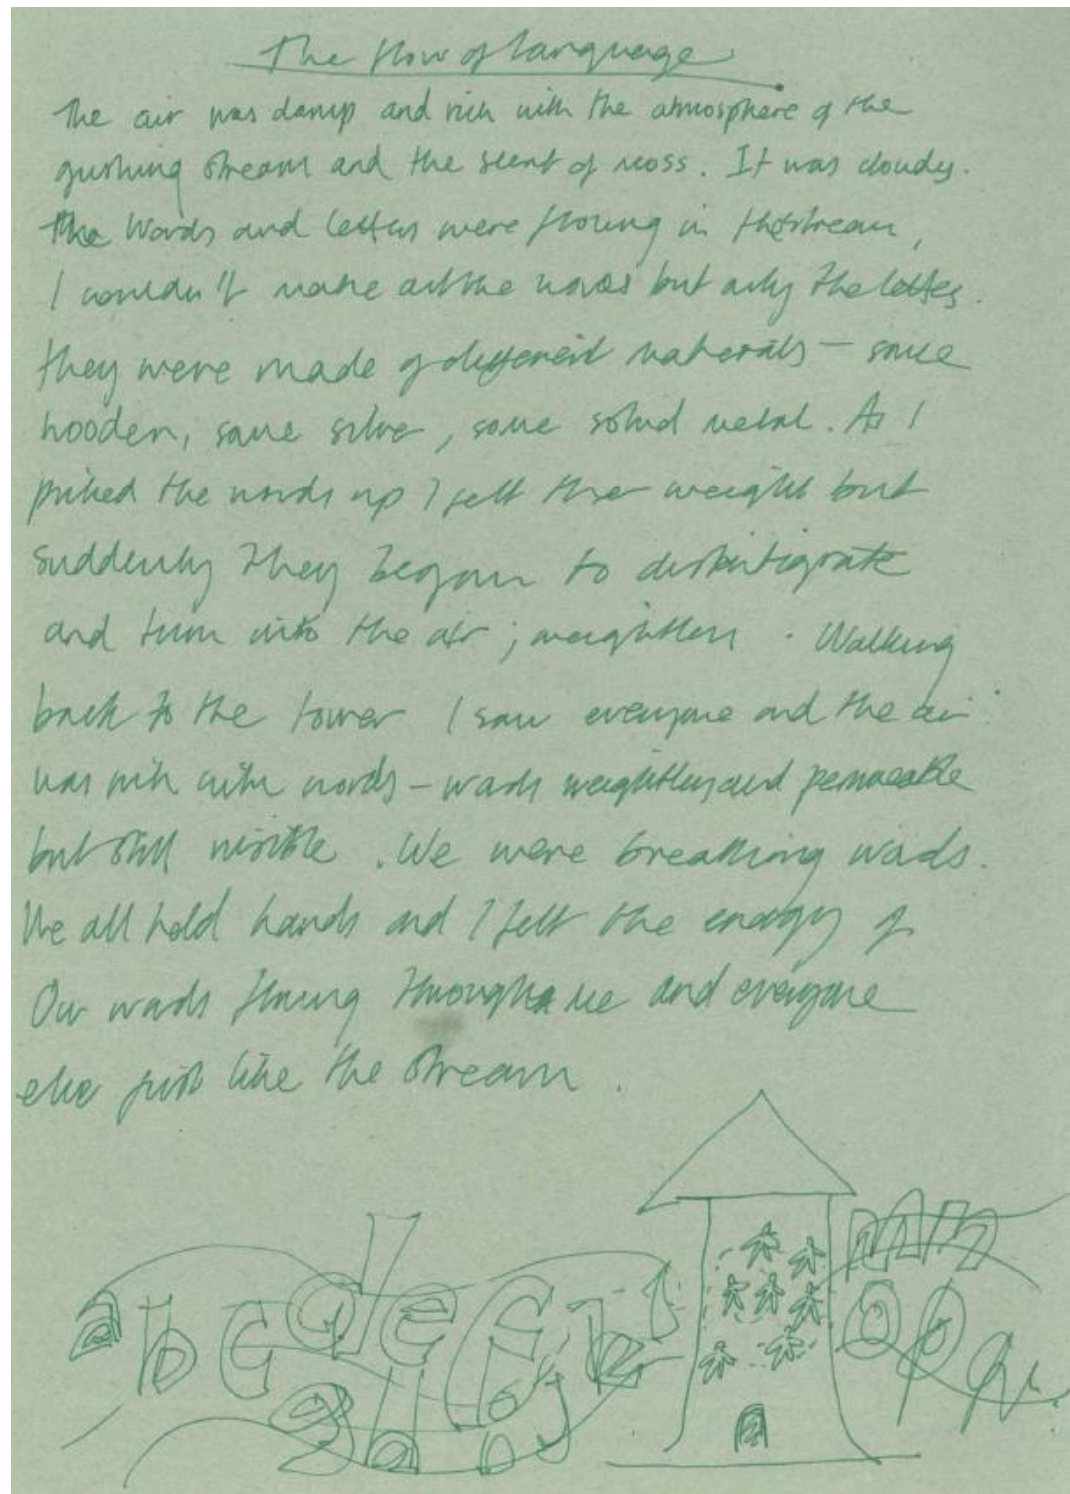 The flow of language
The air was damp and rich with the atmosphere of the
gushing stream and the scent of moss. It was cloudy.
The Words and letters were flowing in the stream,
I couldn't make out the words but only the letters.
They were made of different materials – some
wooden, some silver, some solid metal. As I
picked the words up I felt their weight but
suddenly they began to disintigrate
and turn into the air; weightless. Walking
back to the tower I saw everyone and the air
was rich with words – words weightless and permeable
but still visible. We were breathing words.
We all held hands and I felt the energy of
Our words flowing through me and everyone
else just like the stream.
a b c d e f
g h i j k l
m n
o p q r